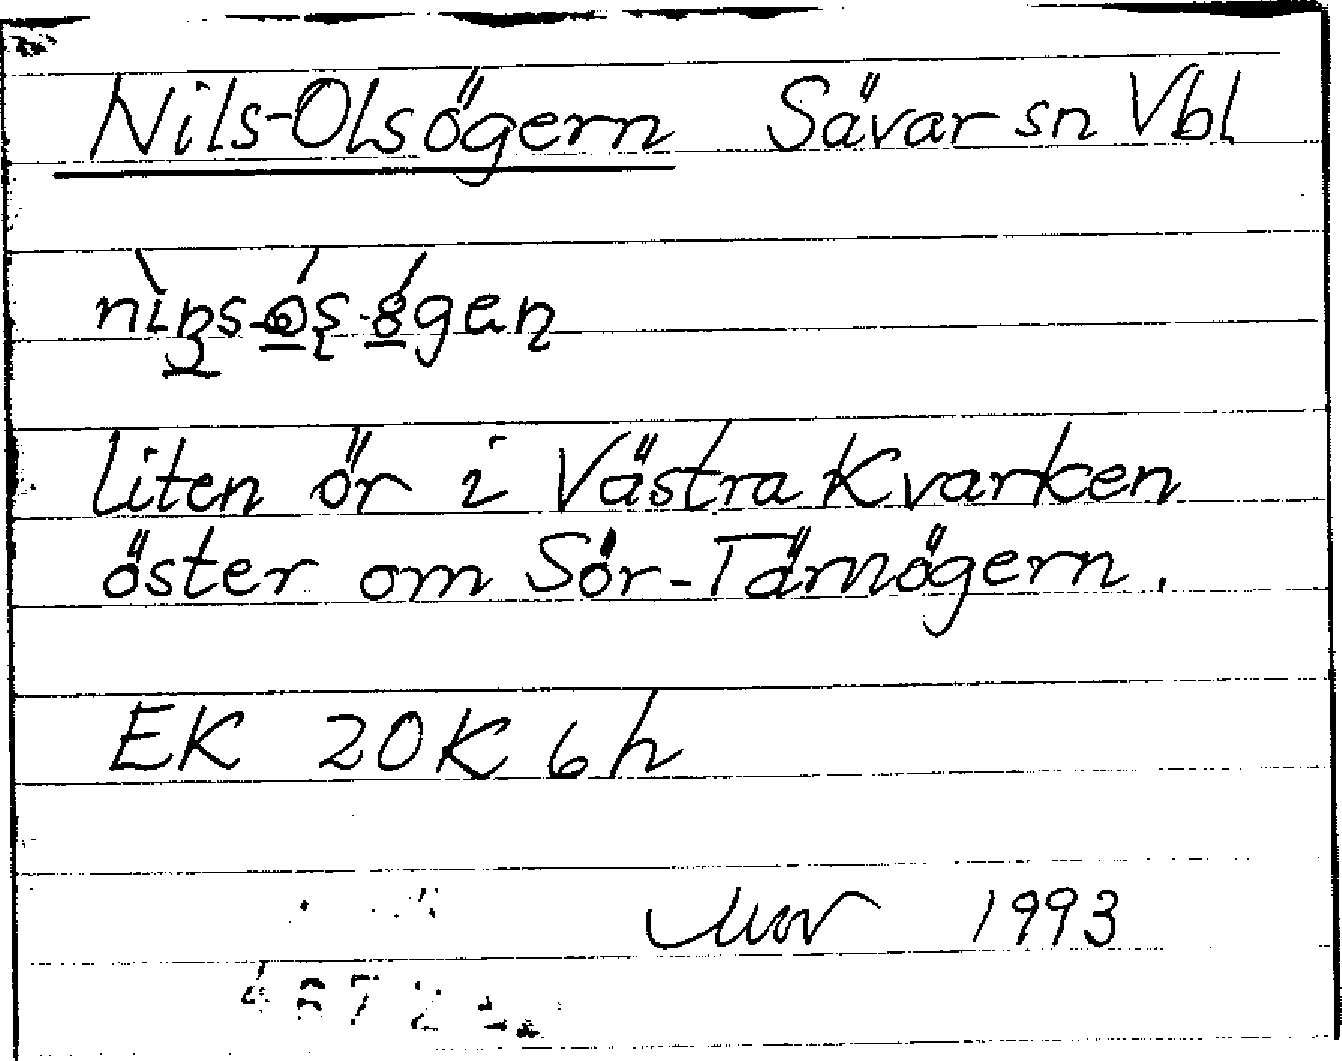 Nils-Olsögern Sävar sn Vbl
liten ör i Västra Kvarken
öster om Sör-Tärnögern.
EK 20K 6h
1993